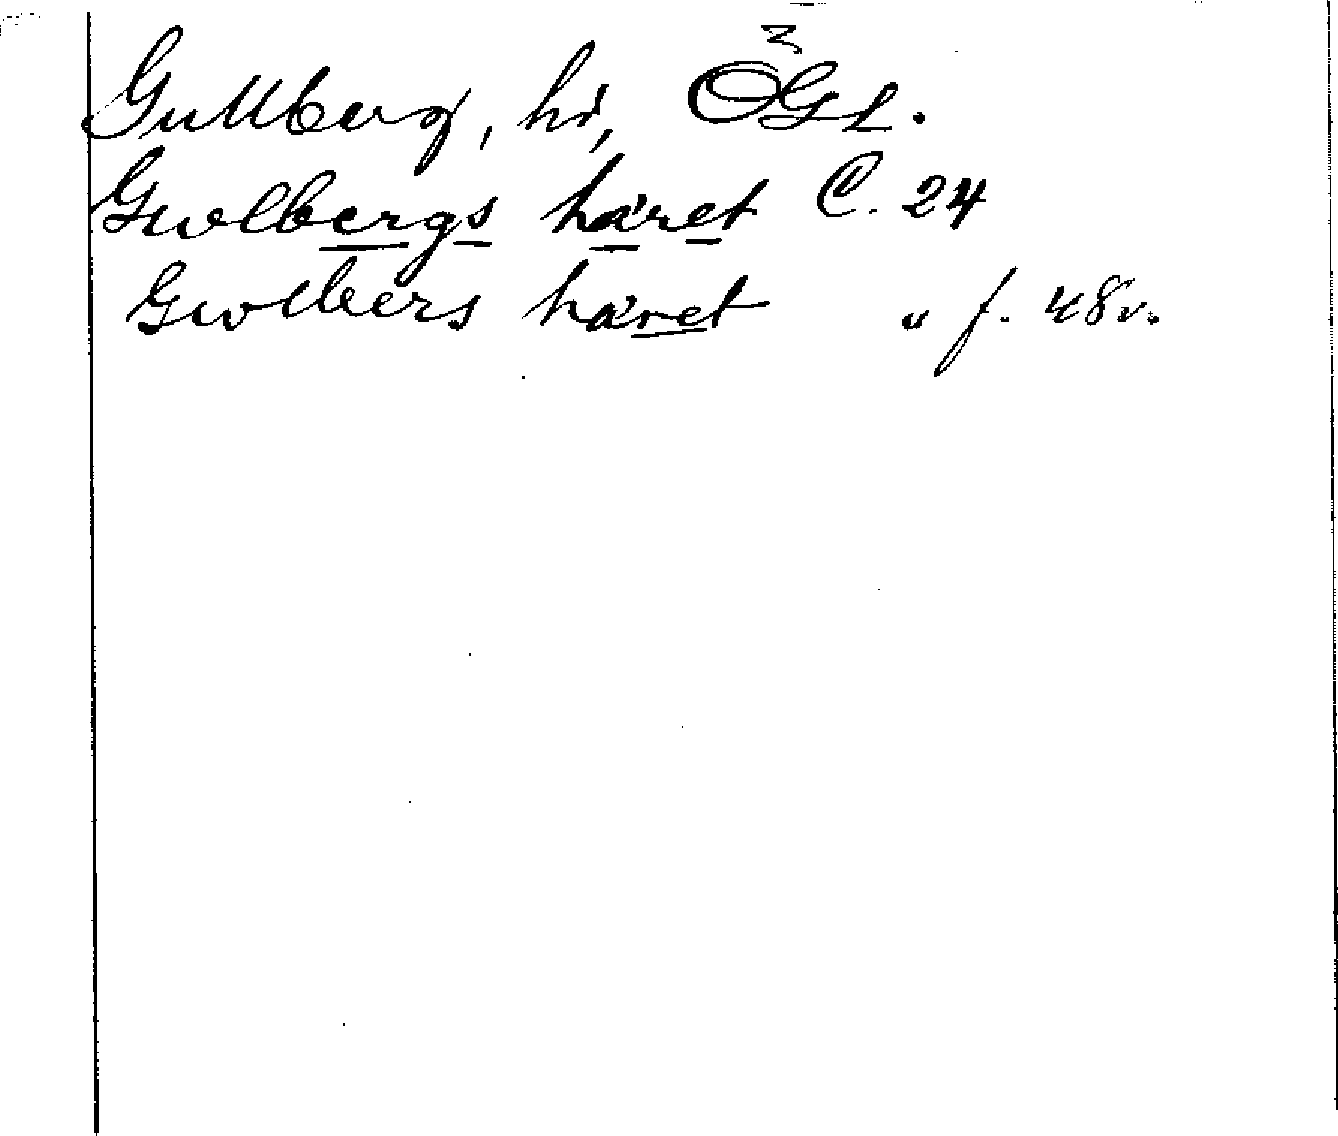 Gullberg, hd, ÖGL.
Gwlbergs häret C. 24
Gwlbers häret " f. 48v.